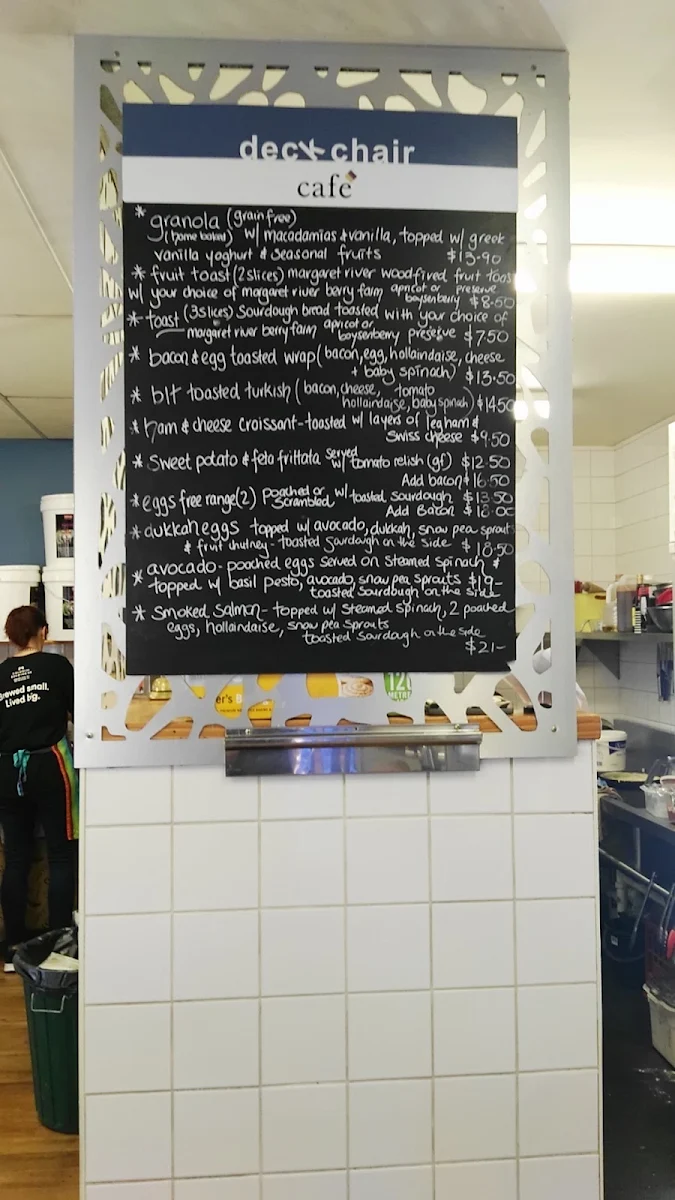 deckchair
café
* granola (grain free)
(home baked) w/ macadamias & vanilla, topped w/ greek
vanilla yoghurt & seasonal fruits $13.90
* fruit toast (2 slices) margaret river woodfired fruit toas
w/ your choice of margaret river berry farm apricot or boysenberry preserve $8.50
* toast (3 slices) Sourdough bread toasted with your choice of
margaret river berry farm apricot or boysenberry preserve $7.50
* bacon & egg toasted wrap (bacon, egg, hollaindaise, cheese
+ baby spinach) $13.50
* blt toasted turkish (bacon, cheese, tomato
hollaindaise, baby spinach) $14.50
* ham & cheese croissant - toasted w/ layers of leg ham &
Swiss cheese $9.50
* sweet potato & feta frittata served w/ tomato relish (gf) $12.50
Add bacon $16.50
* eggs free range (2) poached or scrambled w/ toasted sourdough $13.50
Add Bacon $18.00
* dukkah eggs topped w/ avocado, dukkah, snow pea sprouts
& fruit chutney - toasted sourdough on the side $18.50
* avocado - poached eggs served on steamed spinach &
topped w/ basil pesto, avocado, snow pea sprouts $19-
toasted sourdough on the side
* smoked salmon - topped w/ steamed spinach, 2 poached
eggs, hollaindaise, snow pea sprouts
toasted sourdough on the side
$21-
Brewed small.
Lived big.
er's B
120
METRE